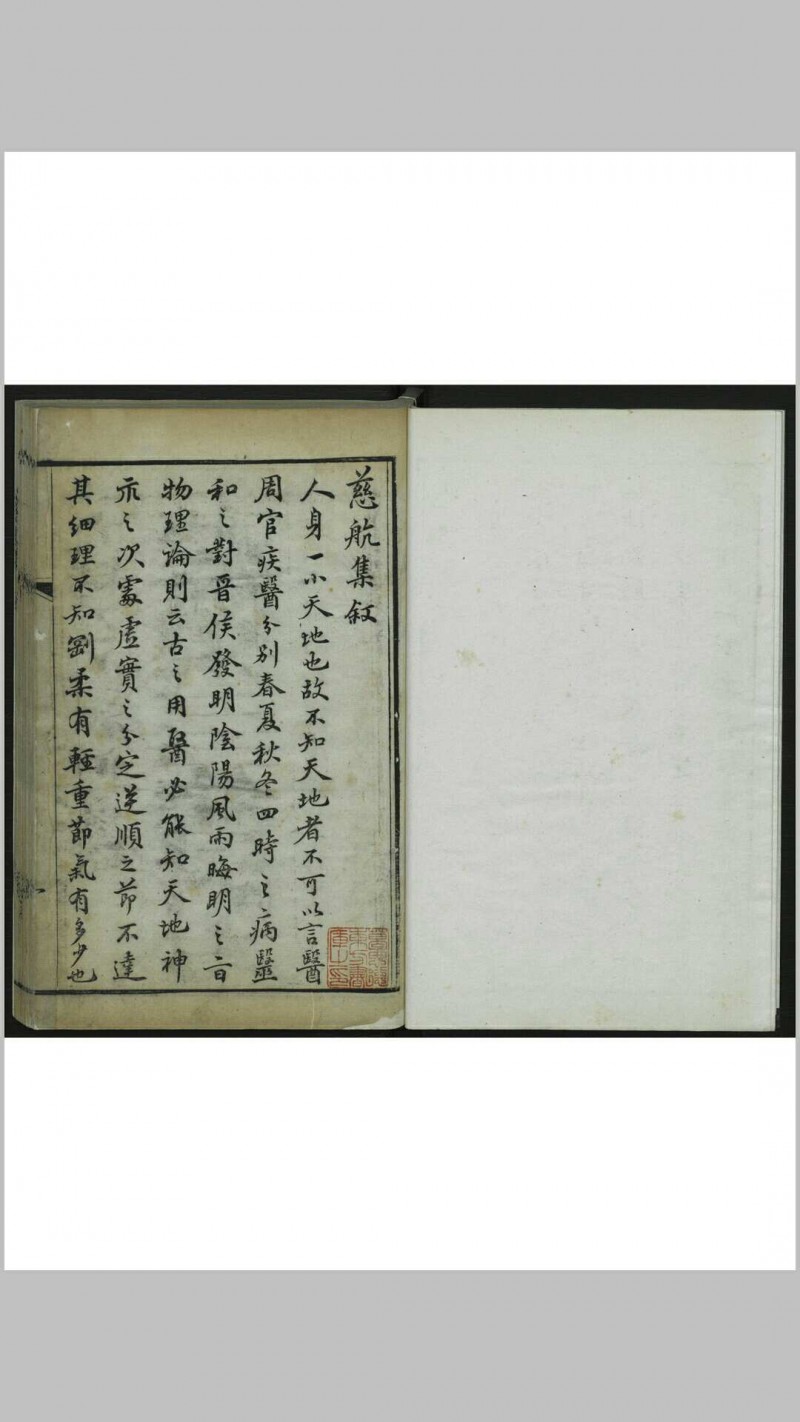 慈航集叙
人身一小天地也故不知天地者不可以言醫
周官疾醫分別春夏秋冬四時之病毉
和之對晋侯發明陰陽風雨晦明之旨
物理論則云古之用醫必能知天地神
示之次處虛實之分定逆順之節不達
其細理不知剛柔有輕重節氣有多少也